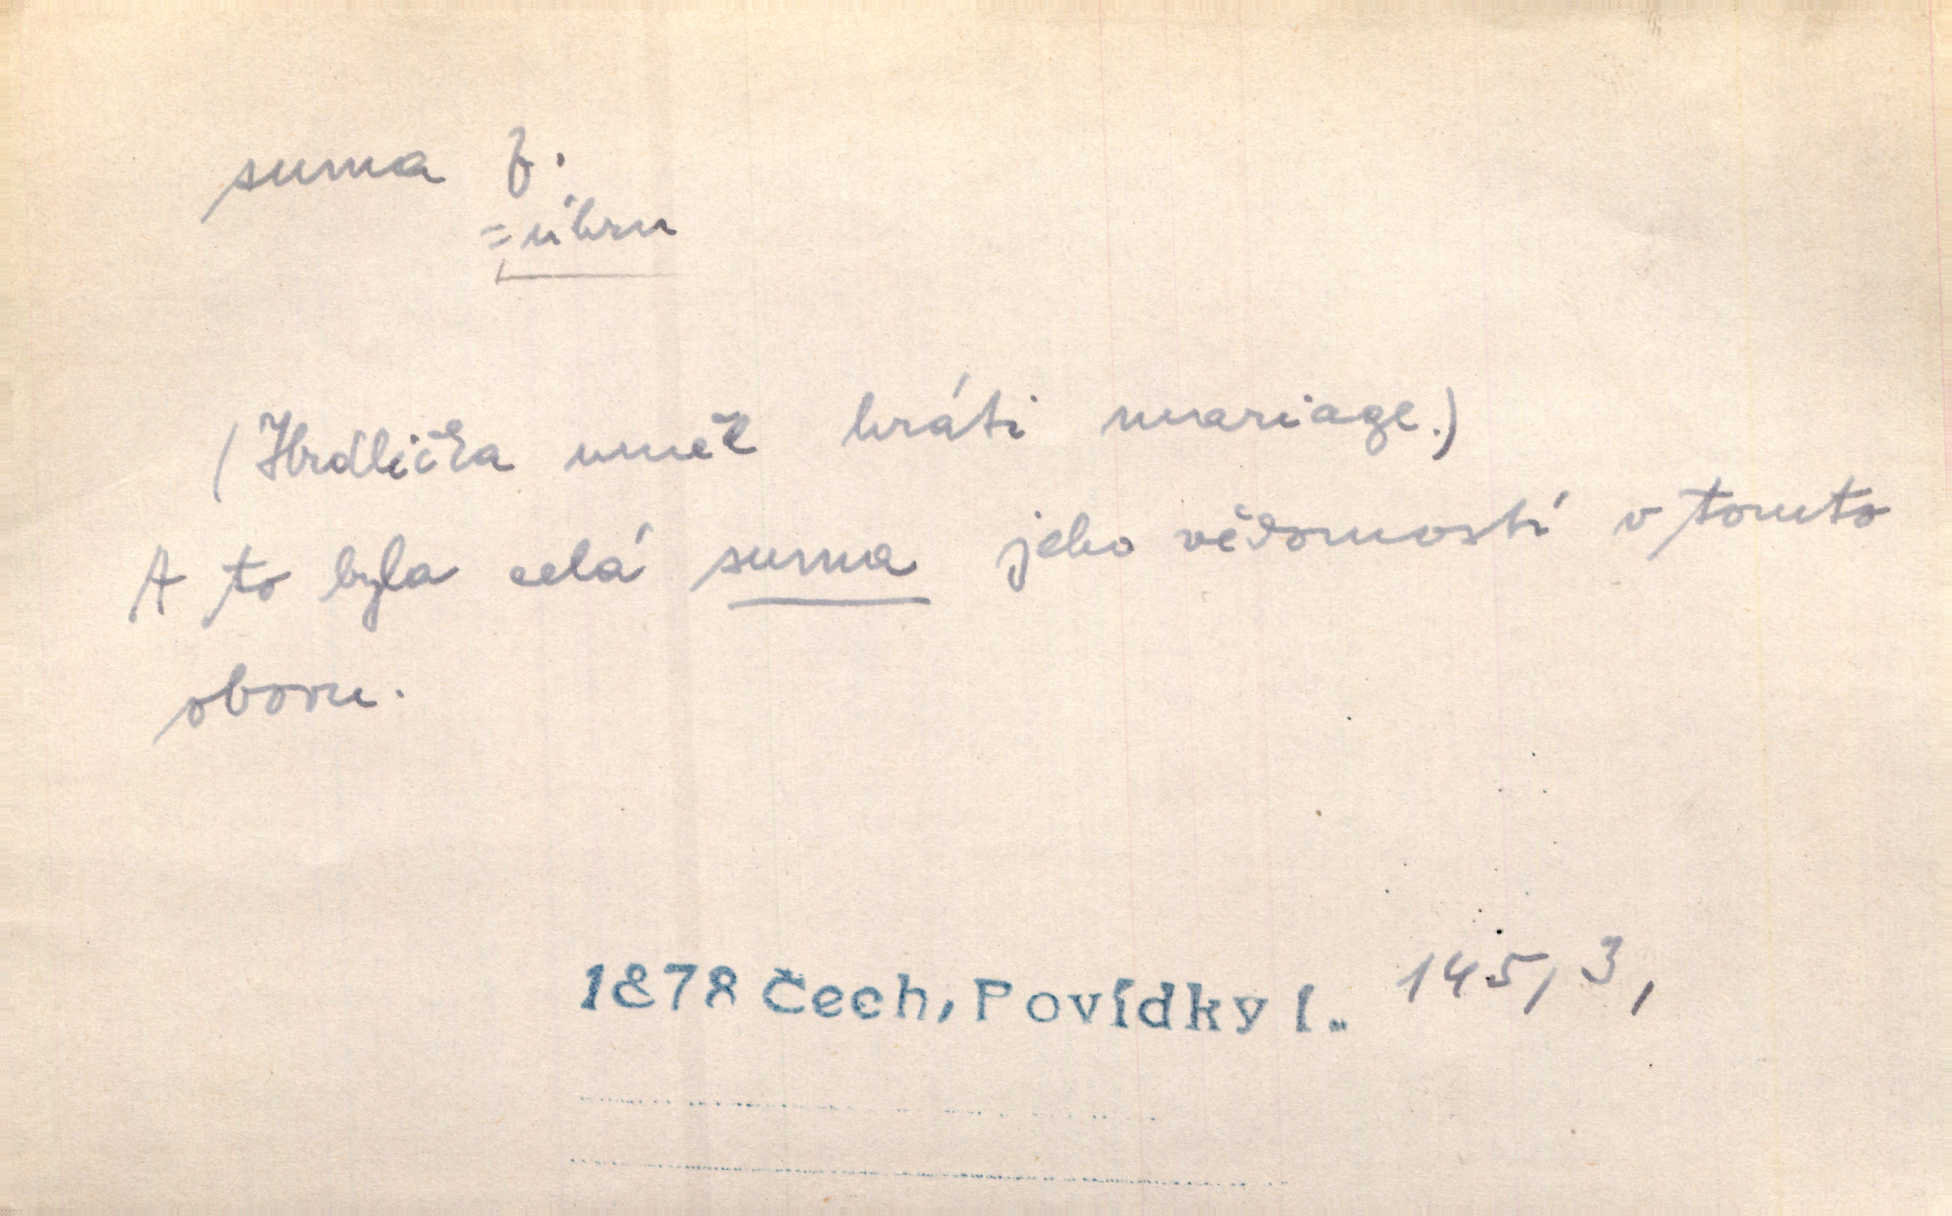 suma f.
= úhrn
(Hrdlička uměl hráti mariage.)
A to byla celá suma jeho vědomostí v tomto
oboru.
1878 Čech, Povídky I. 145, 3,